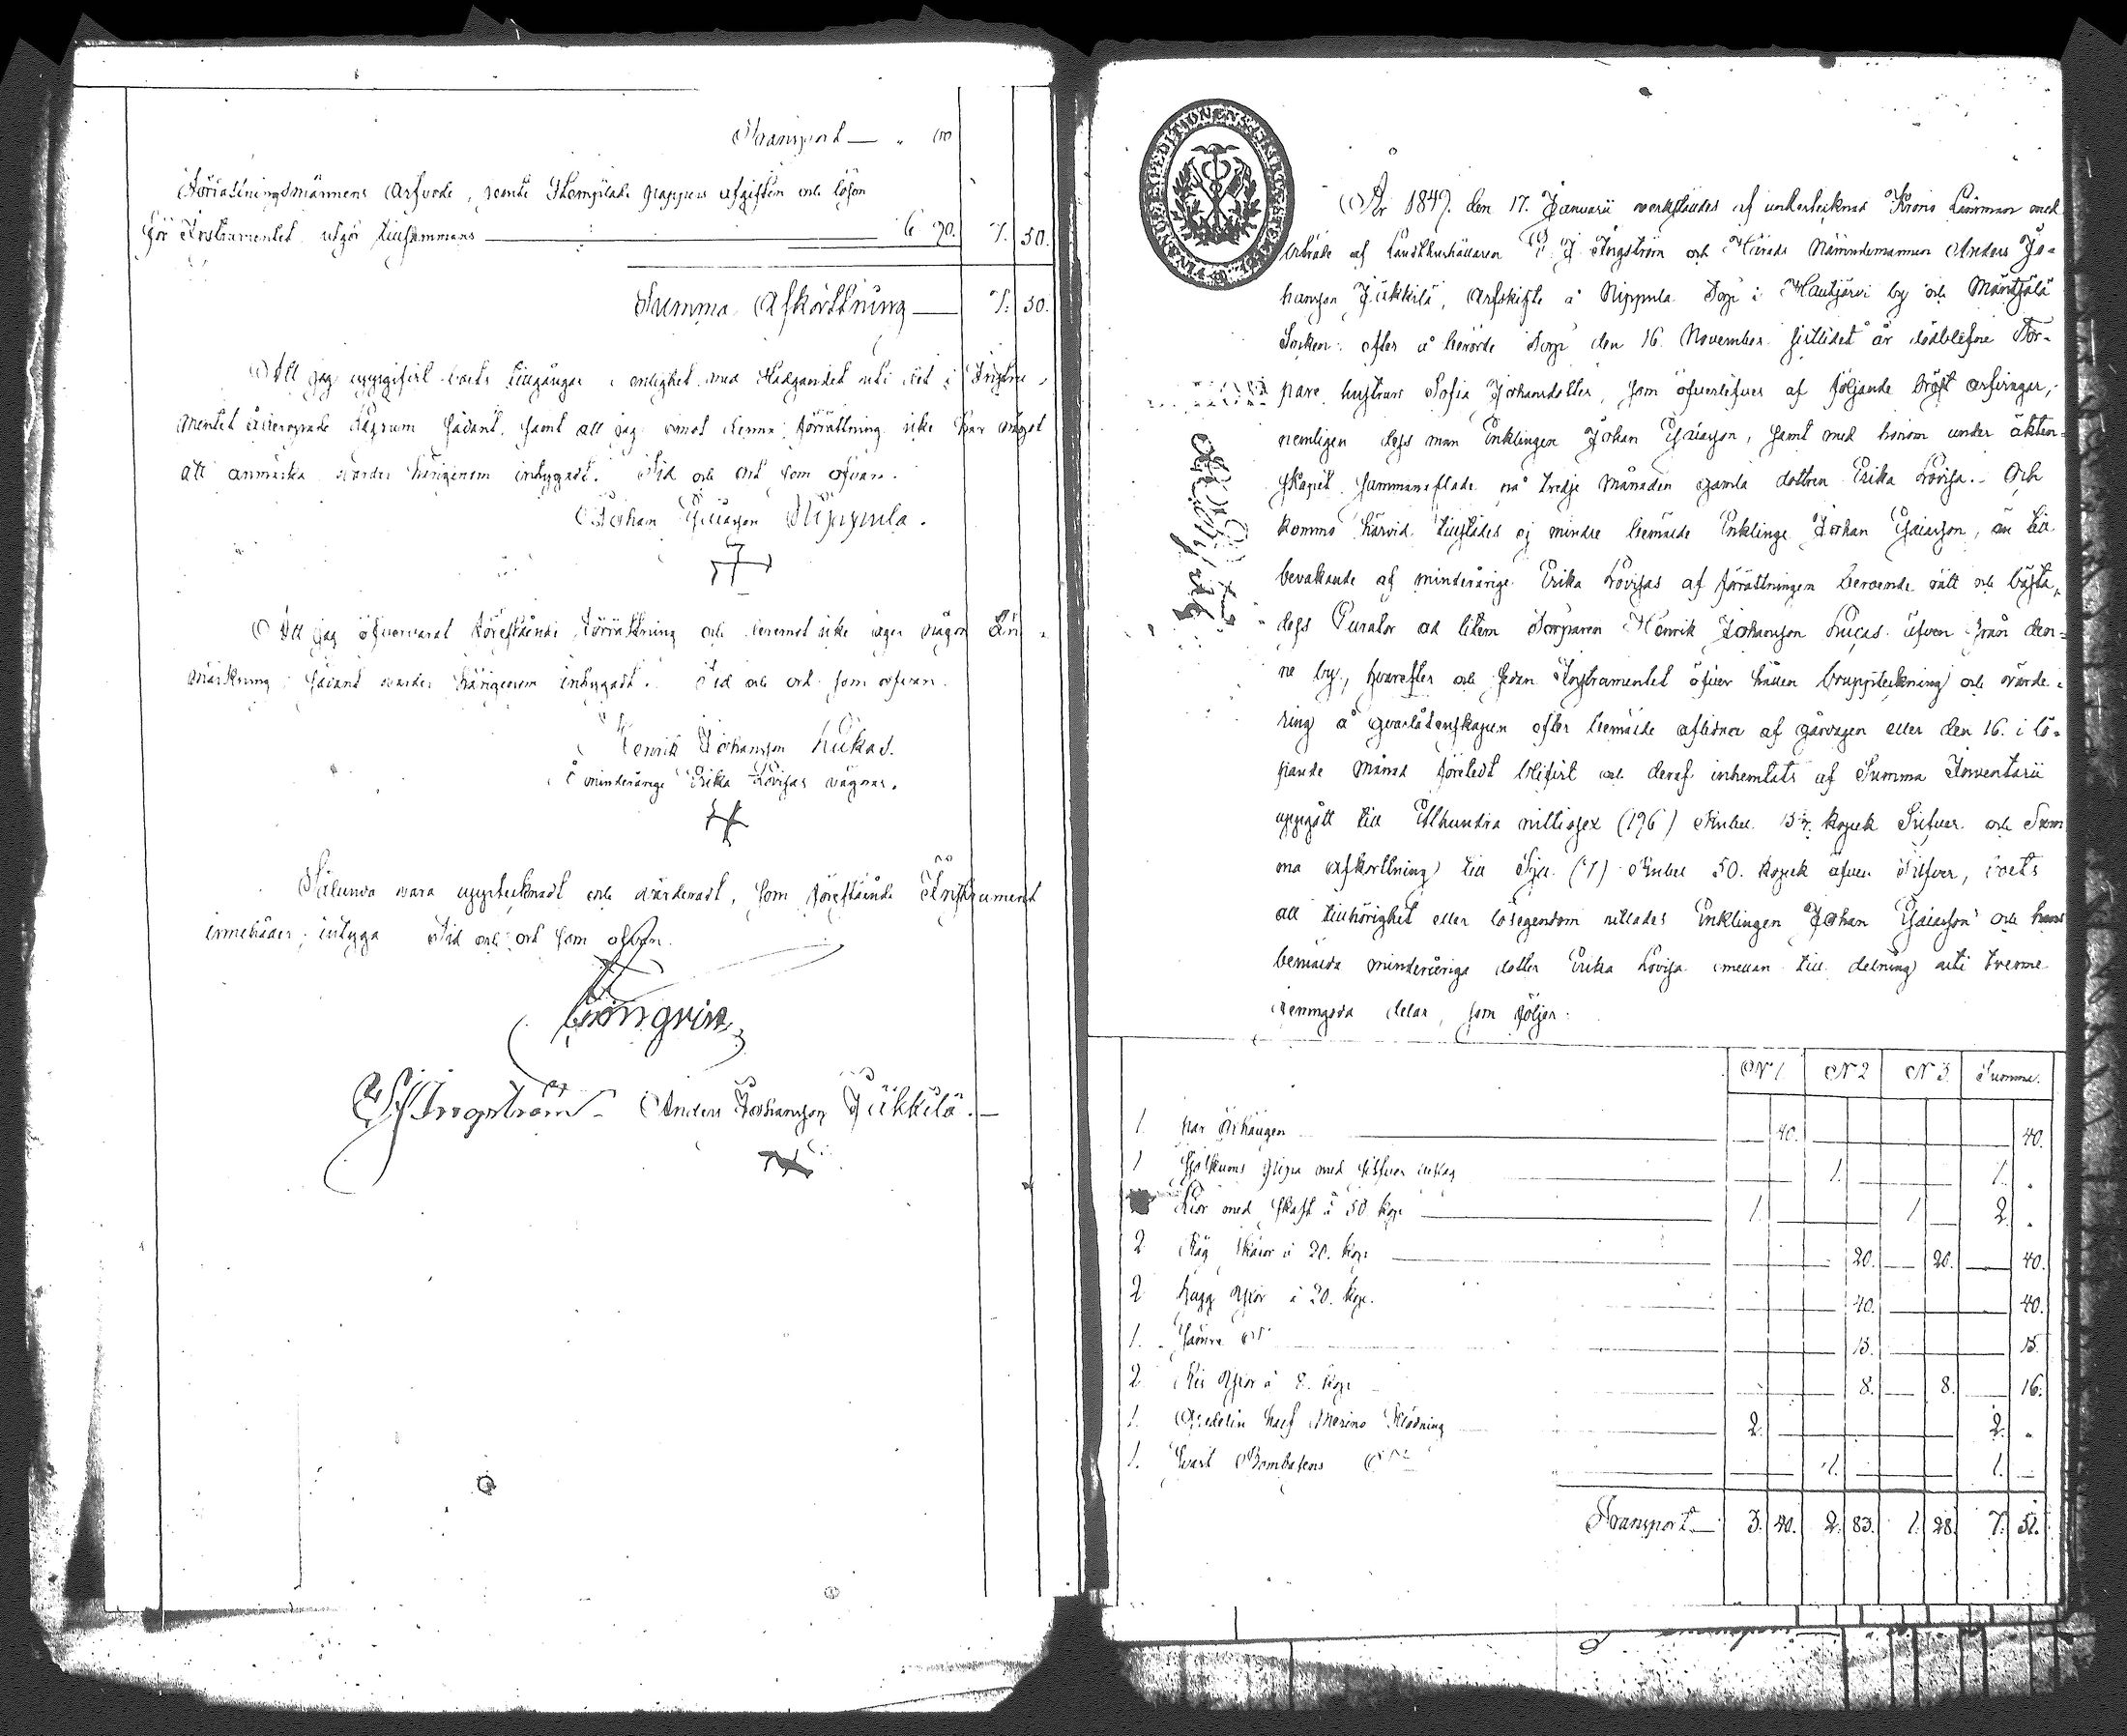 Transport — " 60
Förrättningsmännens Arfvode, samt Stempladt pappers afgiften och lösen
för Instrumentet utgör tillsammans — 6 90. 7. 50.
Summa Afkortning — 7. 50.
Att jag uppgifvit boets tillgångar i enlighet med Stadgandet uti det i Instru-
mentet åberopade sådant, samt att jag emot denna förrättning icke har något
att anmärka varder härigenom intygadt. Tid och ort som ofvan.
Johan Esaiasson Nippula.
Att jag öfvervarat förestående förrättning och deremot icke äger någon An-
märkning; sådant varder härigenom intygadt. Tid och ort som ofvan.
Henrik Johansson Lukas.
å minderåriga Erika Lovisas vägnar.
Sålunda vara upptecknadt och värderadt, som förestående Instrument
innehåller; intyga Tid och ort som ofvan.
Ingström Anders Johansson Jukkila.
År 1849. den 17. Januarii verkstäldes af undertecknad Krono Länsman med
biträde af Landthushållaren J Ingström och Härads Nämndemannen Anders Jo-
hansson Jukkila, Arfskifte å Nippula Torp i Hautjärvi by och Mäntsälä
Socken; efter å berörde Torp den 16. November sistlidet år dödblefne Tor-
pare hustrun Sofia Johansdotter, som öfverlefves af följande bröst arfvingar,
nemligen dess man Enklingen Johan Esaiasson, samt med honom under äkten-
skapet sammanaflade på tredje månaden gamla dottren Erika Lovisa. Och
kommo härvid tillstädes ej mindre bemälde Enkling Johan Esaiasson, än till
bevakande af minderårige Erika Lovisas af förrättningen beroende rätt och bästa,
dess Curator ad litem Torparen Henrik Johansson Lucas äfven från den-
ne by, hvarefter och sedan Instrumentet öfver hållen bouppteckning och värde-
ring å qvarlåtenskapen efter bemälde aflidna af gårdagen eller den 16. i lö-
pande månad företedt blifvit och deraf inhemtats af Summa Inventarii
uppgått till Etthundra nittiosex (196) Rubel kopek Silfver och Sum
ma afkortning till Sju (7) Rubel 50. kopek äfven Silfver, boets
all tillhörighet eller lösegendom Enklingen Johan Esaiasson och hans
bemälda minderåriga dotter Erika Lovisa emellan till delning uti trenne
jemngoda delar, som följer:
N 1 N 2 N 3 Summa.
1 par örhängen — 40. — 40.
1 pipa med silfver beslag — 1. — 1. "
Lior med skaft à 50 kop — 1. — 1 — 2. "
2 Råg skäror à 20. kop. — 20. — 20. — 40.
2 hugg yxor à 20. kop. — 40. — 40.
1. — 15. — 15.
2 Ris yxor à 8. kop — 8. — 8. — 16.
1. half Merino Klädning — 2. — 2. "
1. Svart Bombasens — 1. — 1. —
Transport — 3. 40. 2. 83. 1. 28. 7. 51.